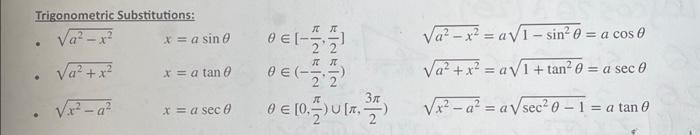 Trigonometric Substitutions:
• √(a² − x²) x = a sin θ θ ∈ [−π/2, π/2] √(a² − x²) = a√(1 − sin² θ) = a cos θ
• √(a² + x²) x = a tan θ θ ∈ (−π/2, π/2) √(a² + x²) = a√(1 + tan² θ) = a sec θ
• √(x² − a²) x = a sec θ θ ∈ [0, π/2) ∪ [π, 3π/2) √(x² − a²) = a√(sec² θ − 1) = a tan θ